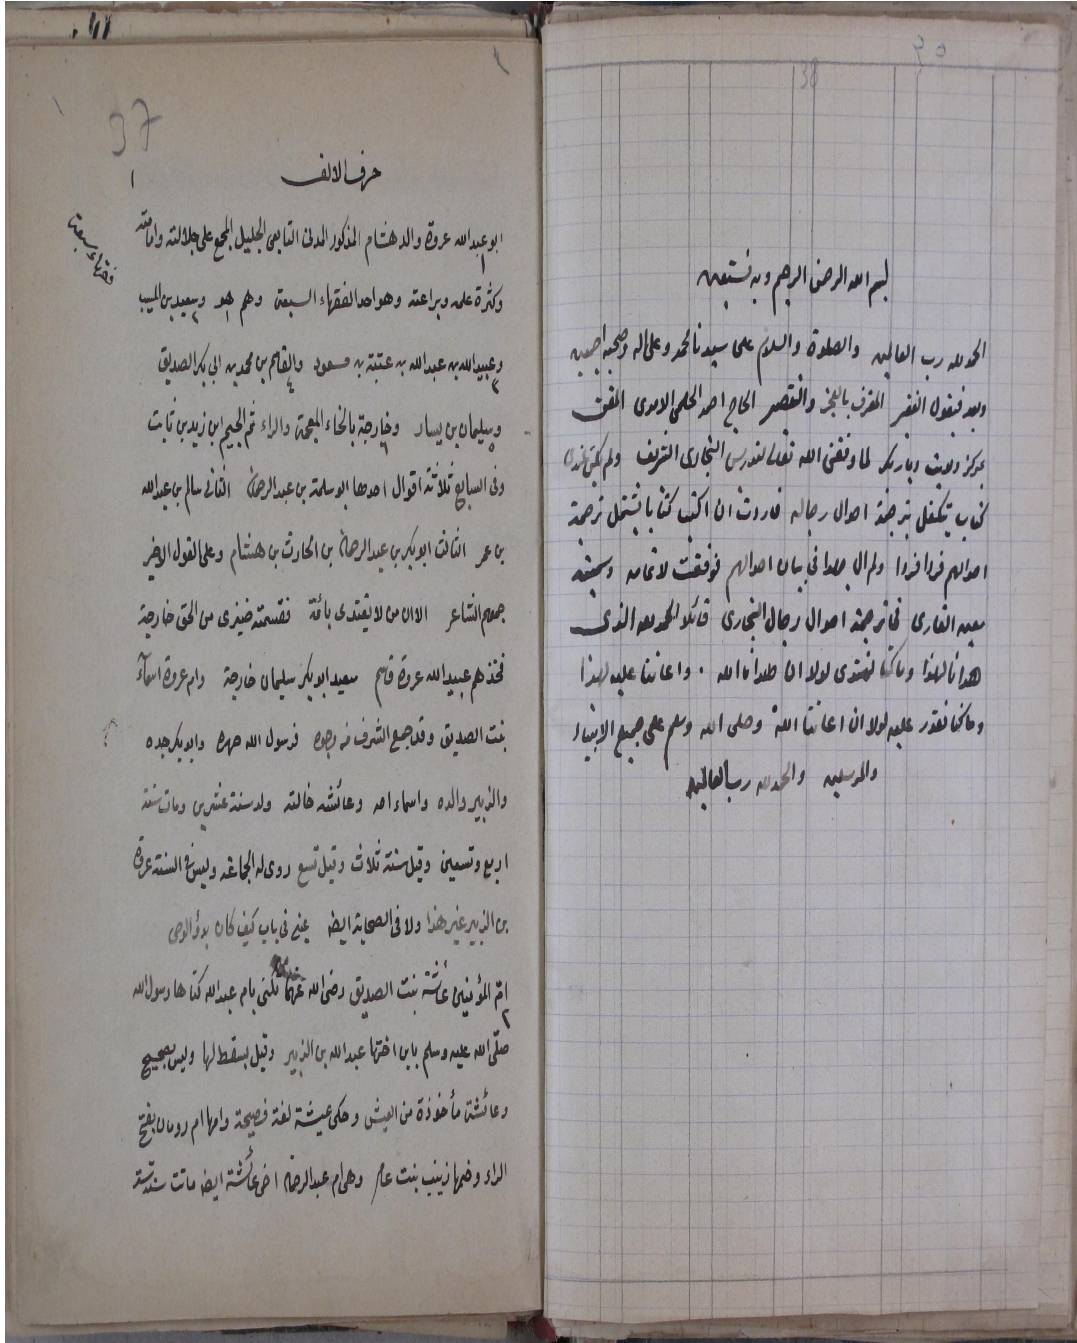 38
بسم الله الرحمن الرحيم وبه نستعين
الحمد لله رب العالمين والصلوة والسلام على سيدنا محمد وعلى اله وصحبه اجمعين
وبعد فيقول الفقير المعترف بالعجز والتقصير الحاج احمد الحلمى الامدى المفتى
بمركز ولايت دياربكر لما وفقنى الله تعالى لتدريس البخارى الشريف ولم يكن عندى
كتاب يتكفل بترجمة احوال رجاله فاردت ان اكتب كتابا يشتمل ترجمة
احوالهم فردا فردا ولم ال جهدا فى بيان احوالهم فوفقت لاتمامه وسميته
معين القارى فى ترجمة احوال رجال البخارى قائلا الحمد لله الذى
هدانا لهذا وما كنا لنهتدى لولا ان هدانا الله . واعاننا عليه لهذا
وما كنا نقدر عليه لولا ان اعاننا الله وصلى الله وسلم على جميع الانبياء
والمرسلين والحمد لله رب العالمين
37
حرف الالف
١
ابو عبدالله عروة والد هشام المذكور المدنى التابعى الجليل المجمع على جلالته وامامته
فقهاء سبعة
وكثرة علمه وبراعته وهو احد الفقهاء السبعة وهم هو وسعيد بن المسيب
وعبيدالله بن عبدالله بن عتبة بن مسعود والقاسم بن محمد بن ابى بكر الصديق
وسليمان بن يسار وخارجة بالخاء المعجمة والراء ثم الجيم ابن زيد بن ثابت
وفى السابع ثلاثة اقوال احدها ابو سلمة بن عبدالرحمن الثانى سالم بن عبدالله
بن عمر الثالث ابوبكر بن عبدالرحمن بن الحارث بن هشام وعلى القول الاخير
جمعهم الشاعر الا ان من لا يقتدى بائمة فقسمته ضيزى من الحق خارجة
فخذهم عبيدالله عروة قاسم سعيد ابوبكر سليمان خارجة وام عروة اسمآء
بنت الصديق وقد جمع الشرف من وجوه فرسول الله صهره وابوبكر جده
والزبير والده واسماء امه وعائشه خالته ولد سنة عشرين ومات سنة
اربع وتسعين وقيل سنة ثلاث وقيل تسع روى له الجماعه وليس فى الستة عروة
بن الزبير غير هذا ولا فى الصحابة ايضا عينى فى باب كيف كان بدؤ الوحى
امّ المؤمنين عائشة بنت الصديق رضى الله عنهما تكنى بام عبدالله كناها رسول الله
صلّى الله عليه وسلم بابن اختها عبدالله بن الزبير وقيل بسقط لها وليس بصحيح
وعائشة مأخوذة من العيش وحكى عيشة لغة فصيحة وامها ام رومان بفتح
الراء وضمها زينب بنت عامر وهى ام عبدالرحمن اخى عائشة ايضا ماتت سنة ستة